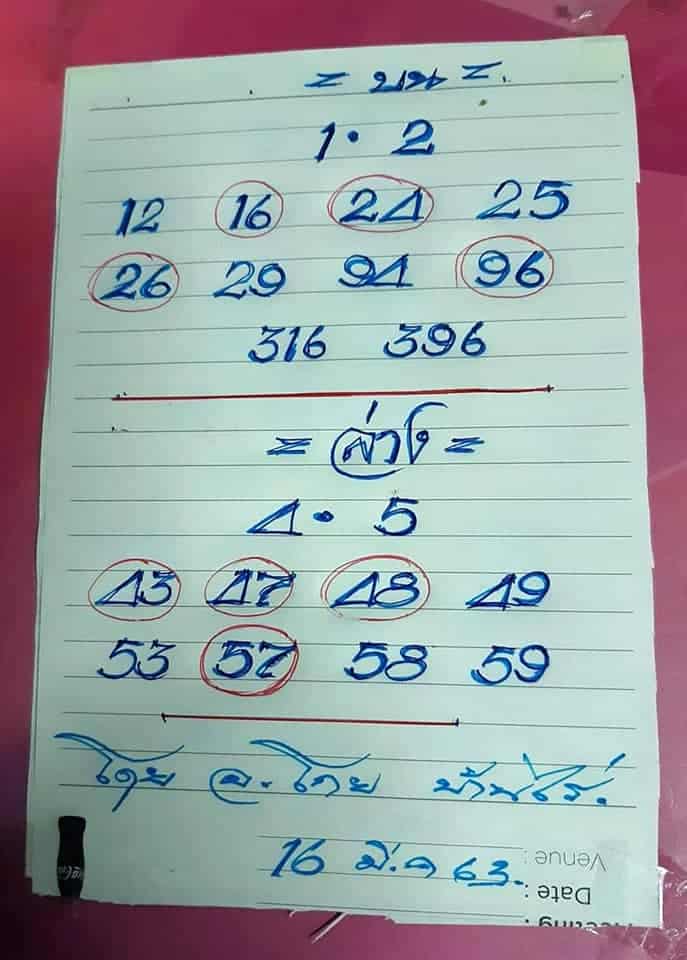 = บน =
1 • 2
12 16 24 25
26 29 94 96
316 396
= ล่าง =
4 • 5
43 47 48 49
53 57 58 59
โดย อ. โดย บ้านไร่.
16 มี.ค 63.
Venue :
Date :
Meeting :